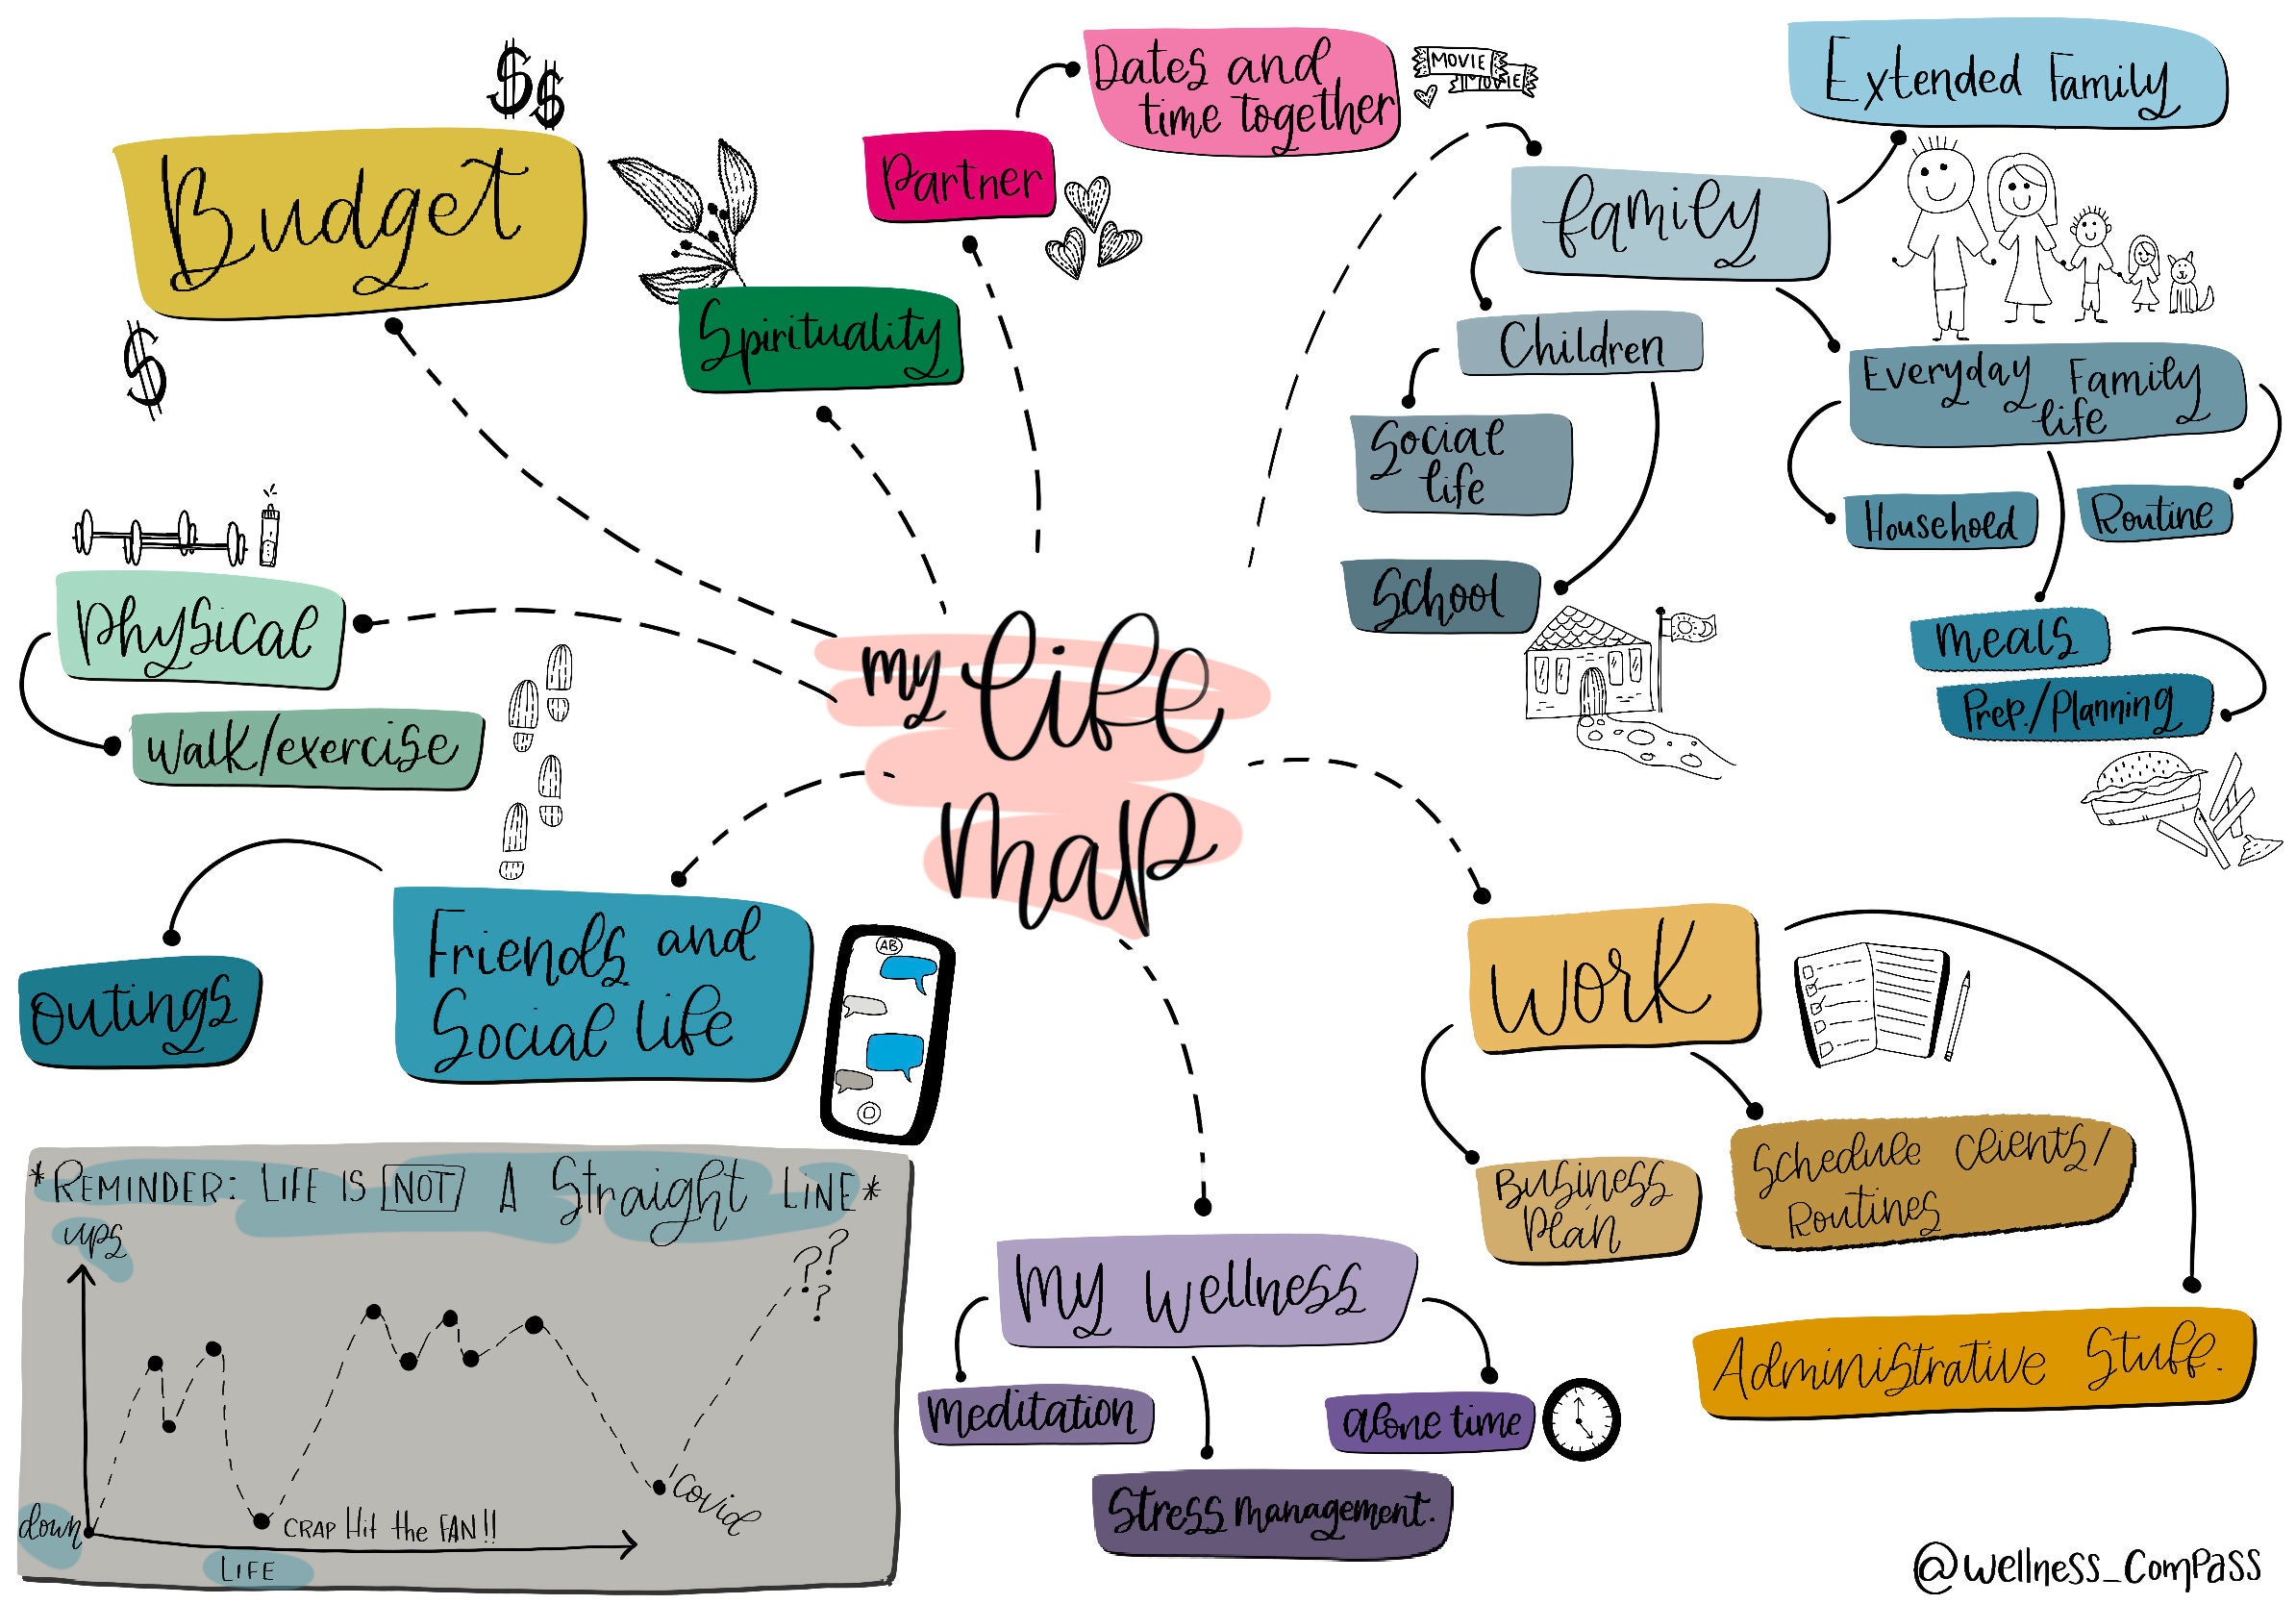 $$
Budget
$
Spirituality
Partner
Dates and
time together
MOVIE
MOVIE
Family
Extended Family
Children
Social
life
School
Everyday Family
life
Household
Routine
Meals
Prep./Planning
Physical
Walk/exercise
My Life
Map
Friends and
Social Life
Outings
AB
Work
Business
Plan
Schedule Clients/
Routines
Administrative Stuff.
My Wellness
Meditation
Stress Management.
alone time
*REMINDER: LIFE IS NOT A Straight LINE*
ups
???
down
CRAP Hit the FAN!!
Covid
LIFE
@wellness_compass